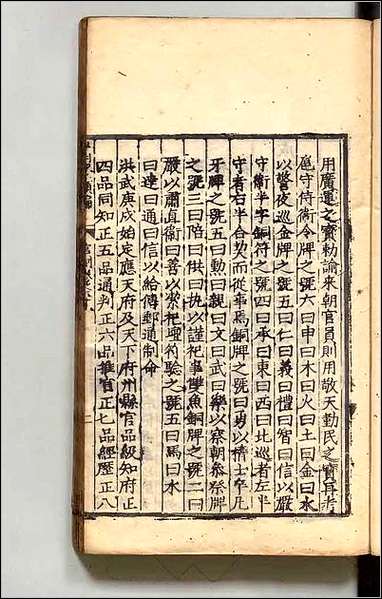 用廣運之寶勅諭来朝官員則用敬天勤民之寶
扈守侍衛令牌之號六曰申曰木曰火曰土曰金曰水
以警夜巡金牌之號五曰仁曰義曰禮曰智曰信以嚴
守衛半字銅符之號四曰承曰東曰西曰北巡者左半
守者右半合契而從事焉銅牌之號一曰勇以精士卒
牙牌之號五曰勲曰親曰文曰武曰樂以察朝叅祭牌
之號三曰陪曰供曰执以謹祀事雙魚銅牌之號二曰
嚴以肅直衛曰善以察祀壇符驗之號五曰馬曰水
曰達曰通曰信以給傳郵通制命
洪武庚戌始定應天府及天下府州縣官品級知府正
四品同知正五品通判正六品推官正七品經歷正八